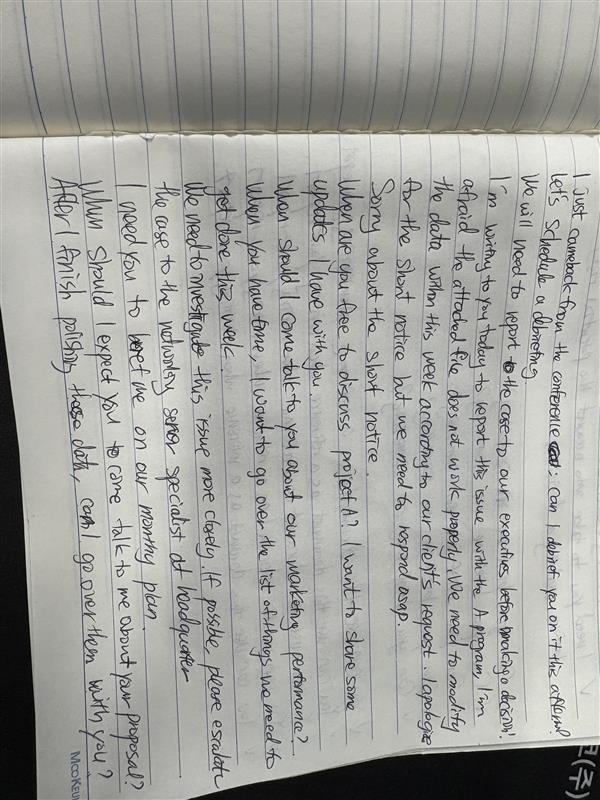 I just came back from the conference. Can I debrief you on it this afternoon?
let's schedule a debriefing
We will need to report the case to our executives before making a decision!
I'm writing to you today to report this issue with the A program, I'm
afraid the attached file does not work properly. We need to modify
the data within this week according to our client's request. I apologize
for the short notice but we need to respond asap.
Sorry about the short notice
When are you free to discuss project A? I want to share some
updates I have with you.
When should I come talk to you about our marketing performance?
When you have time, I want to go over the list of things we need to
get done this week.
We need to investigate this issue more closely. If possible, please escalate
the case to the networking server specialist at headquarter
I need you to brief me on our monthly plan.
When should I expect you to come talk to me about your proposal?
After I finish polishing these data, can I go over them with you?
MOOKEUN
(주)